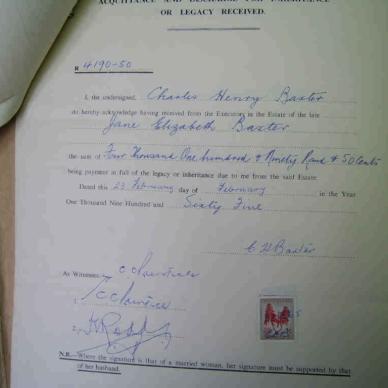 ACQUITTANCE AND DISCHARGE FOR INHERITANCE
OR LEGACY RECEIVED.
R 4190-50
I, the undersigned, Charles Henry Baxter
do hereby acknowledge having received from the Executors in the Estate of the late
Jane Elizabeth Baxter
the sum of Four Thousand One hundred & Ninety Rand & 50 Cents
being payment in full of the legacy or inheritance due to me from the said Estate.
Dated this 23 February day of February in the Year
One Thousand Nine Hundred and Sixty Five
C H Baxter
As Witnesses:
1.
2.
N.B.—Where the signature is that of a married woman, her signature must be supported by that
of her husband.